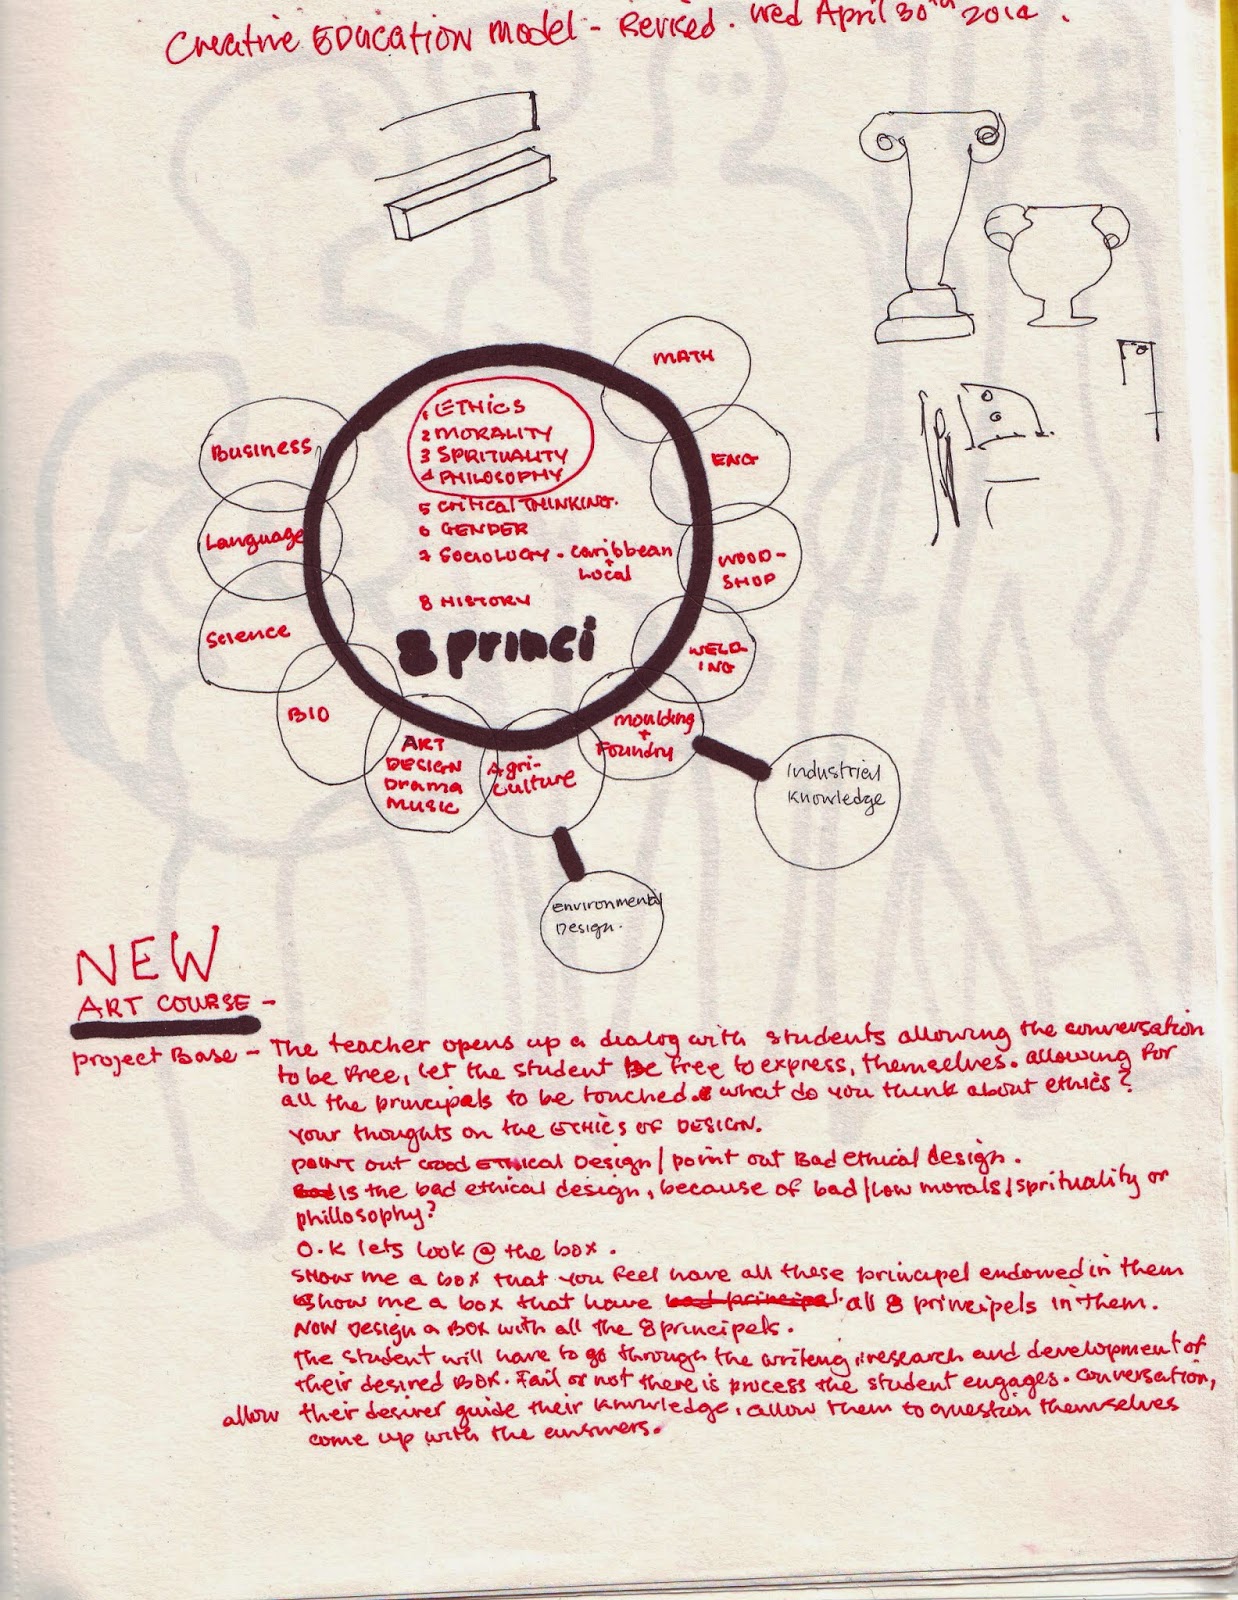 Creative EDUCATION model - Revised. Wed April 30th 2014.
MATH
1 ETHICS
2 MORALITY
3 SPRITUALITY
4 PHILOSOPHY
5 CRITICAL THINKING.
6 GENDER
7 SOCIOLOGY - Caribbean
+
Local
8 HISTORY
8 princi
Business
Language
Science
BIO
ART
DESIGN
Drama
MUSIC
Agri-
culture
moulding
+
Foundry
WELD-
ING
WOOD-
SHOP
ENG
Industrial
Knowledge
Environmental
Design.
NEW
ART COURSE -
project Base - The teacher opens up a dialog with students allowing the conversation
to be free, let the student be free to express, themselves. allowing for
all the principals to be touched. what do you think about ethics?
your thoughts on the ETHICS OF DESIGN.
POINT out Good ETHICAL Design / point out Bad ethical design.
Is the bad ethical design, because of bad/low morals, sprituality or
phillosophy?
O.K lets look @ the box.
Show me a box that you feel have all these principel endowed in them
Show me a box that have bad principal all 8 principels in them.
Now DESIGN a BOX with all the 8 principels.
The student will have to go through the writeng, research and development of
their desired Box. Fail or not there is process the student engages. conversation,
allow their desirer guide their knowledge, allow them to question themselves
come up with the answers.